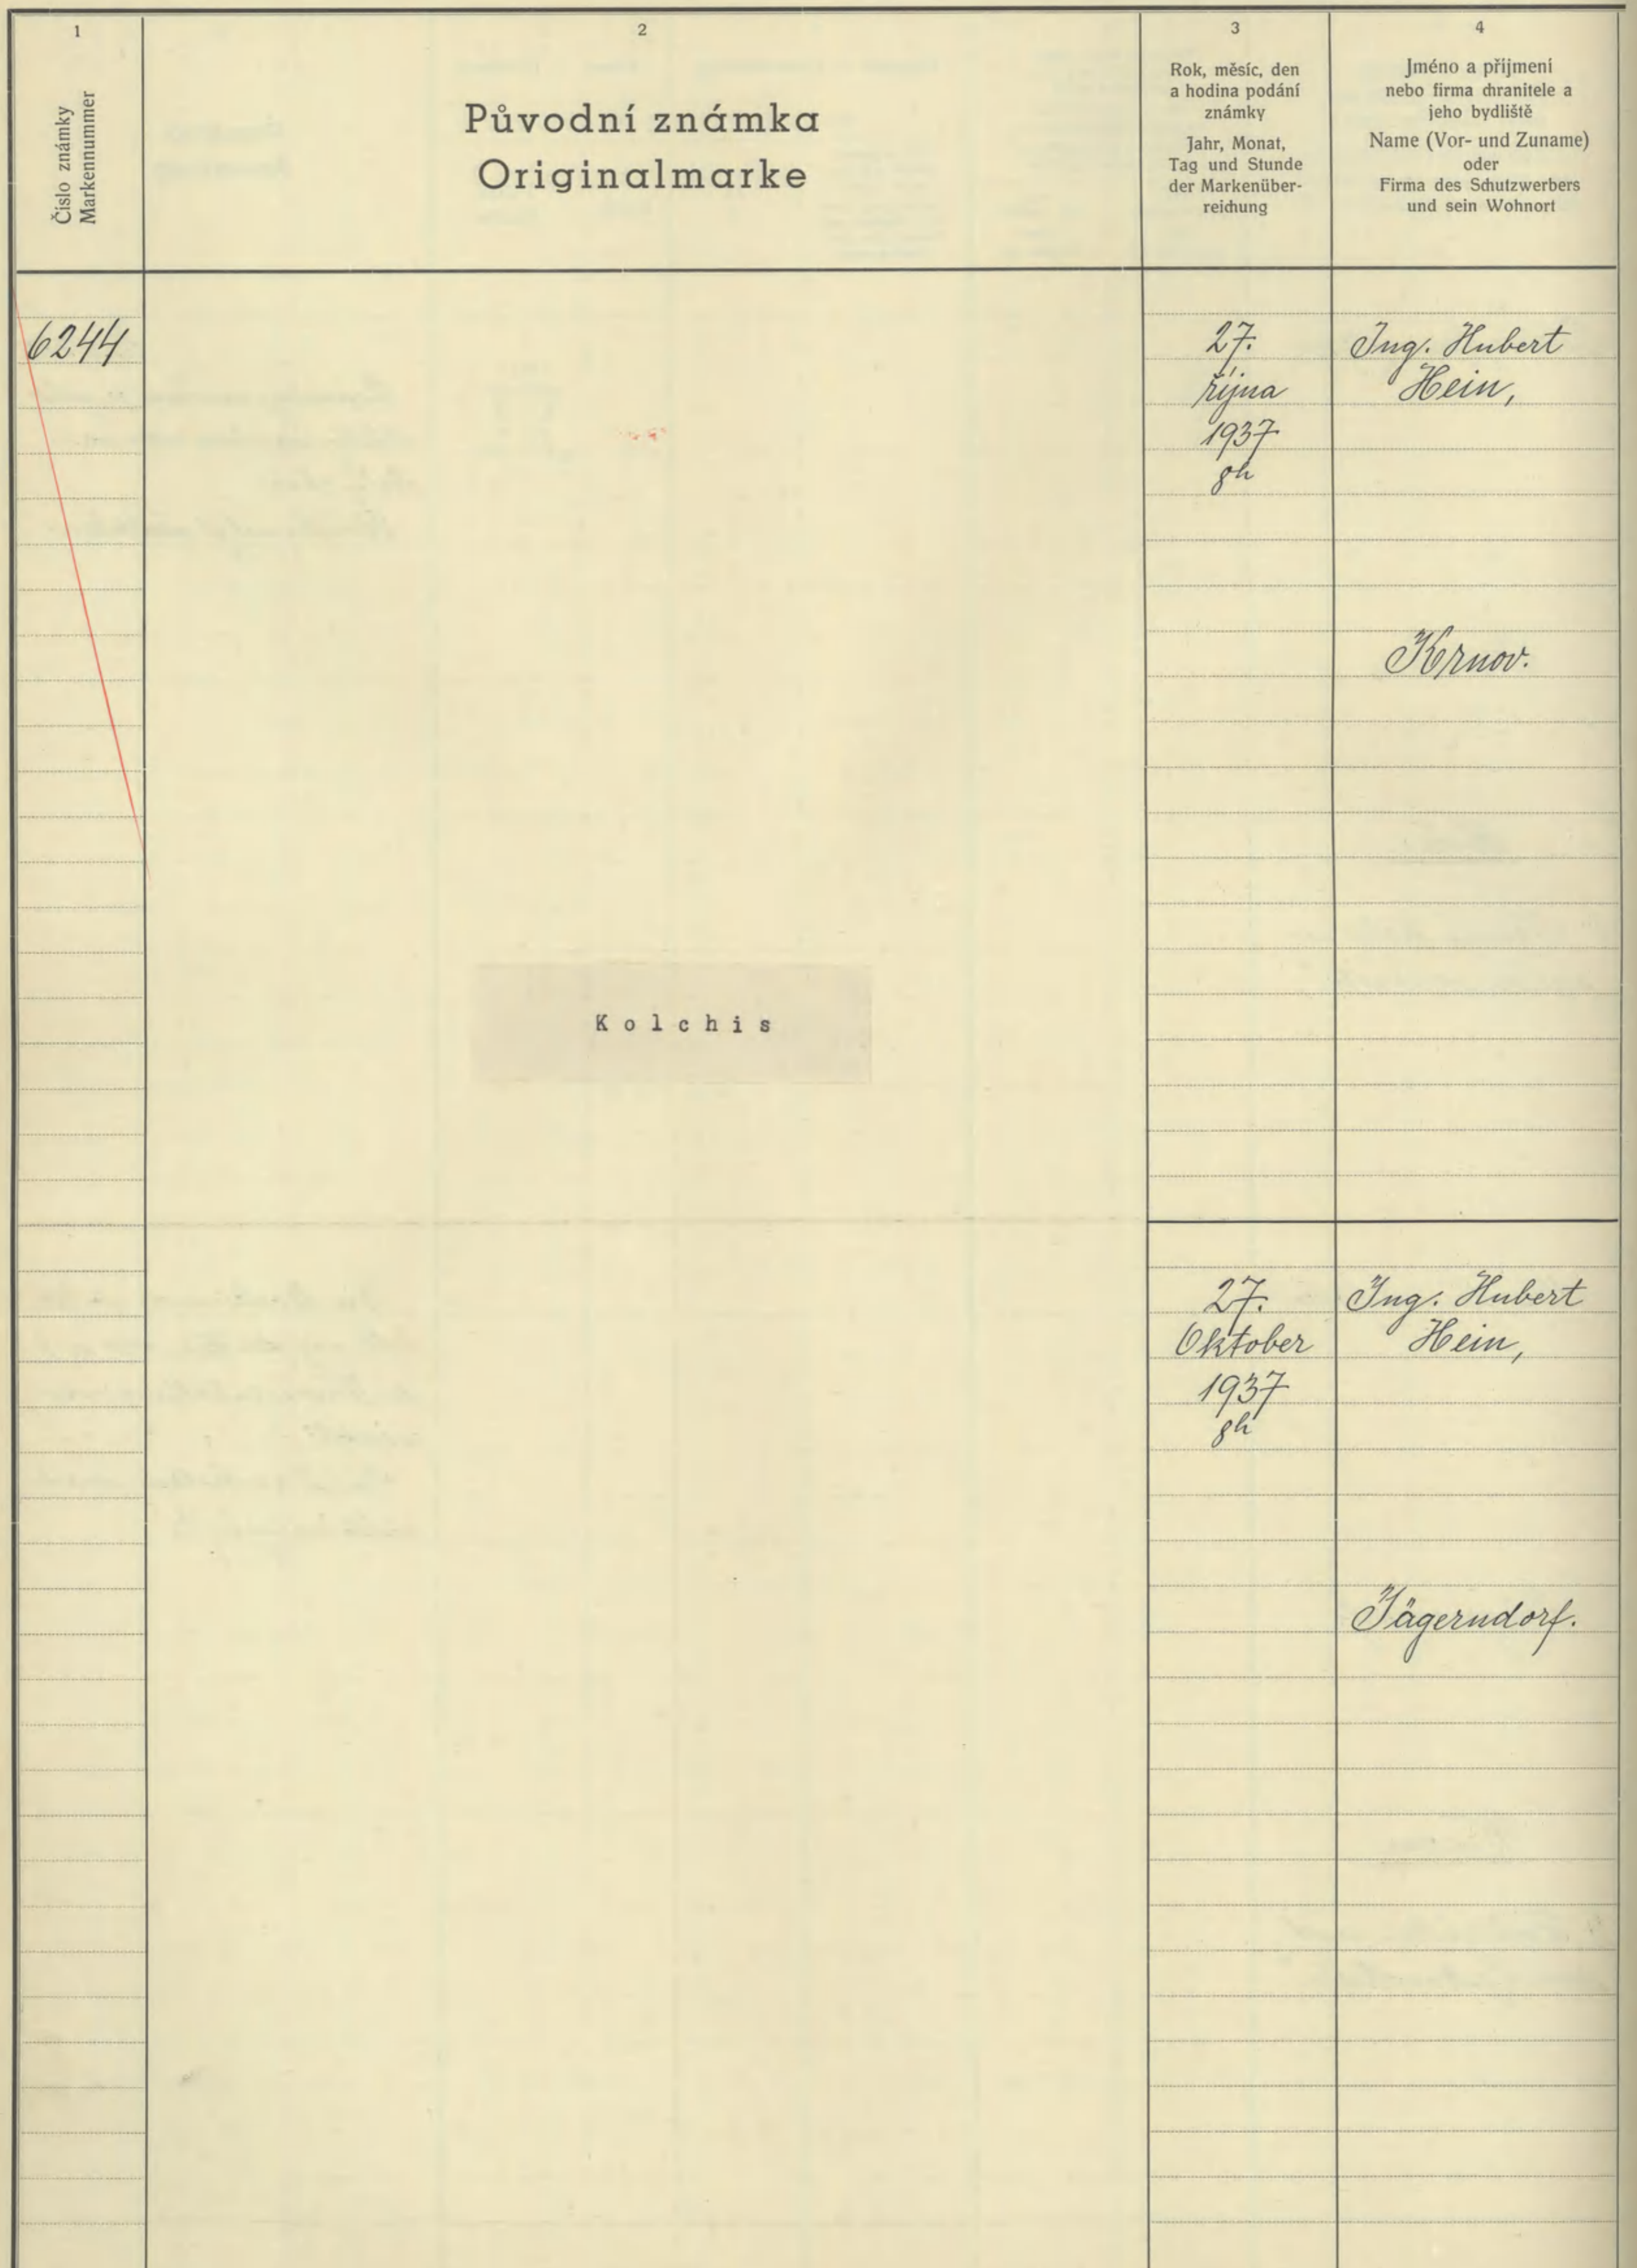 1
Číslo známky
Markennummer
2
Původní známka
Originalmarke
3
Rok, měsíc, den
a hodina podání
známky
Jahr, Monat,
Tag und Stunde
der Markenüber-
reichung
4
Jméno a přijmení
nebo firma chranitele a
jeho bydliště
Name (Vor- und Zuname)
oder
Firma des Schutzwerbers
und sein Wohnort
6244
27.
října
1937
8h
Ing. Hubert
Hein,
Krnov.
Kolchis
27.
Oktober
1937
8h
Ing. Hubert
Hein,
Jägerndorf.